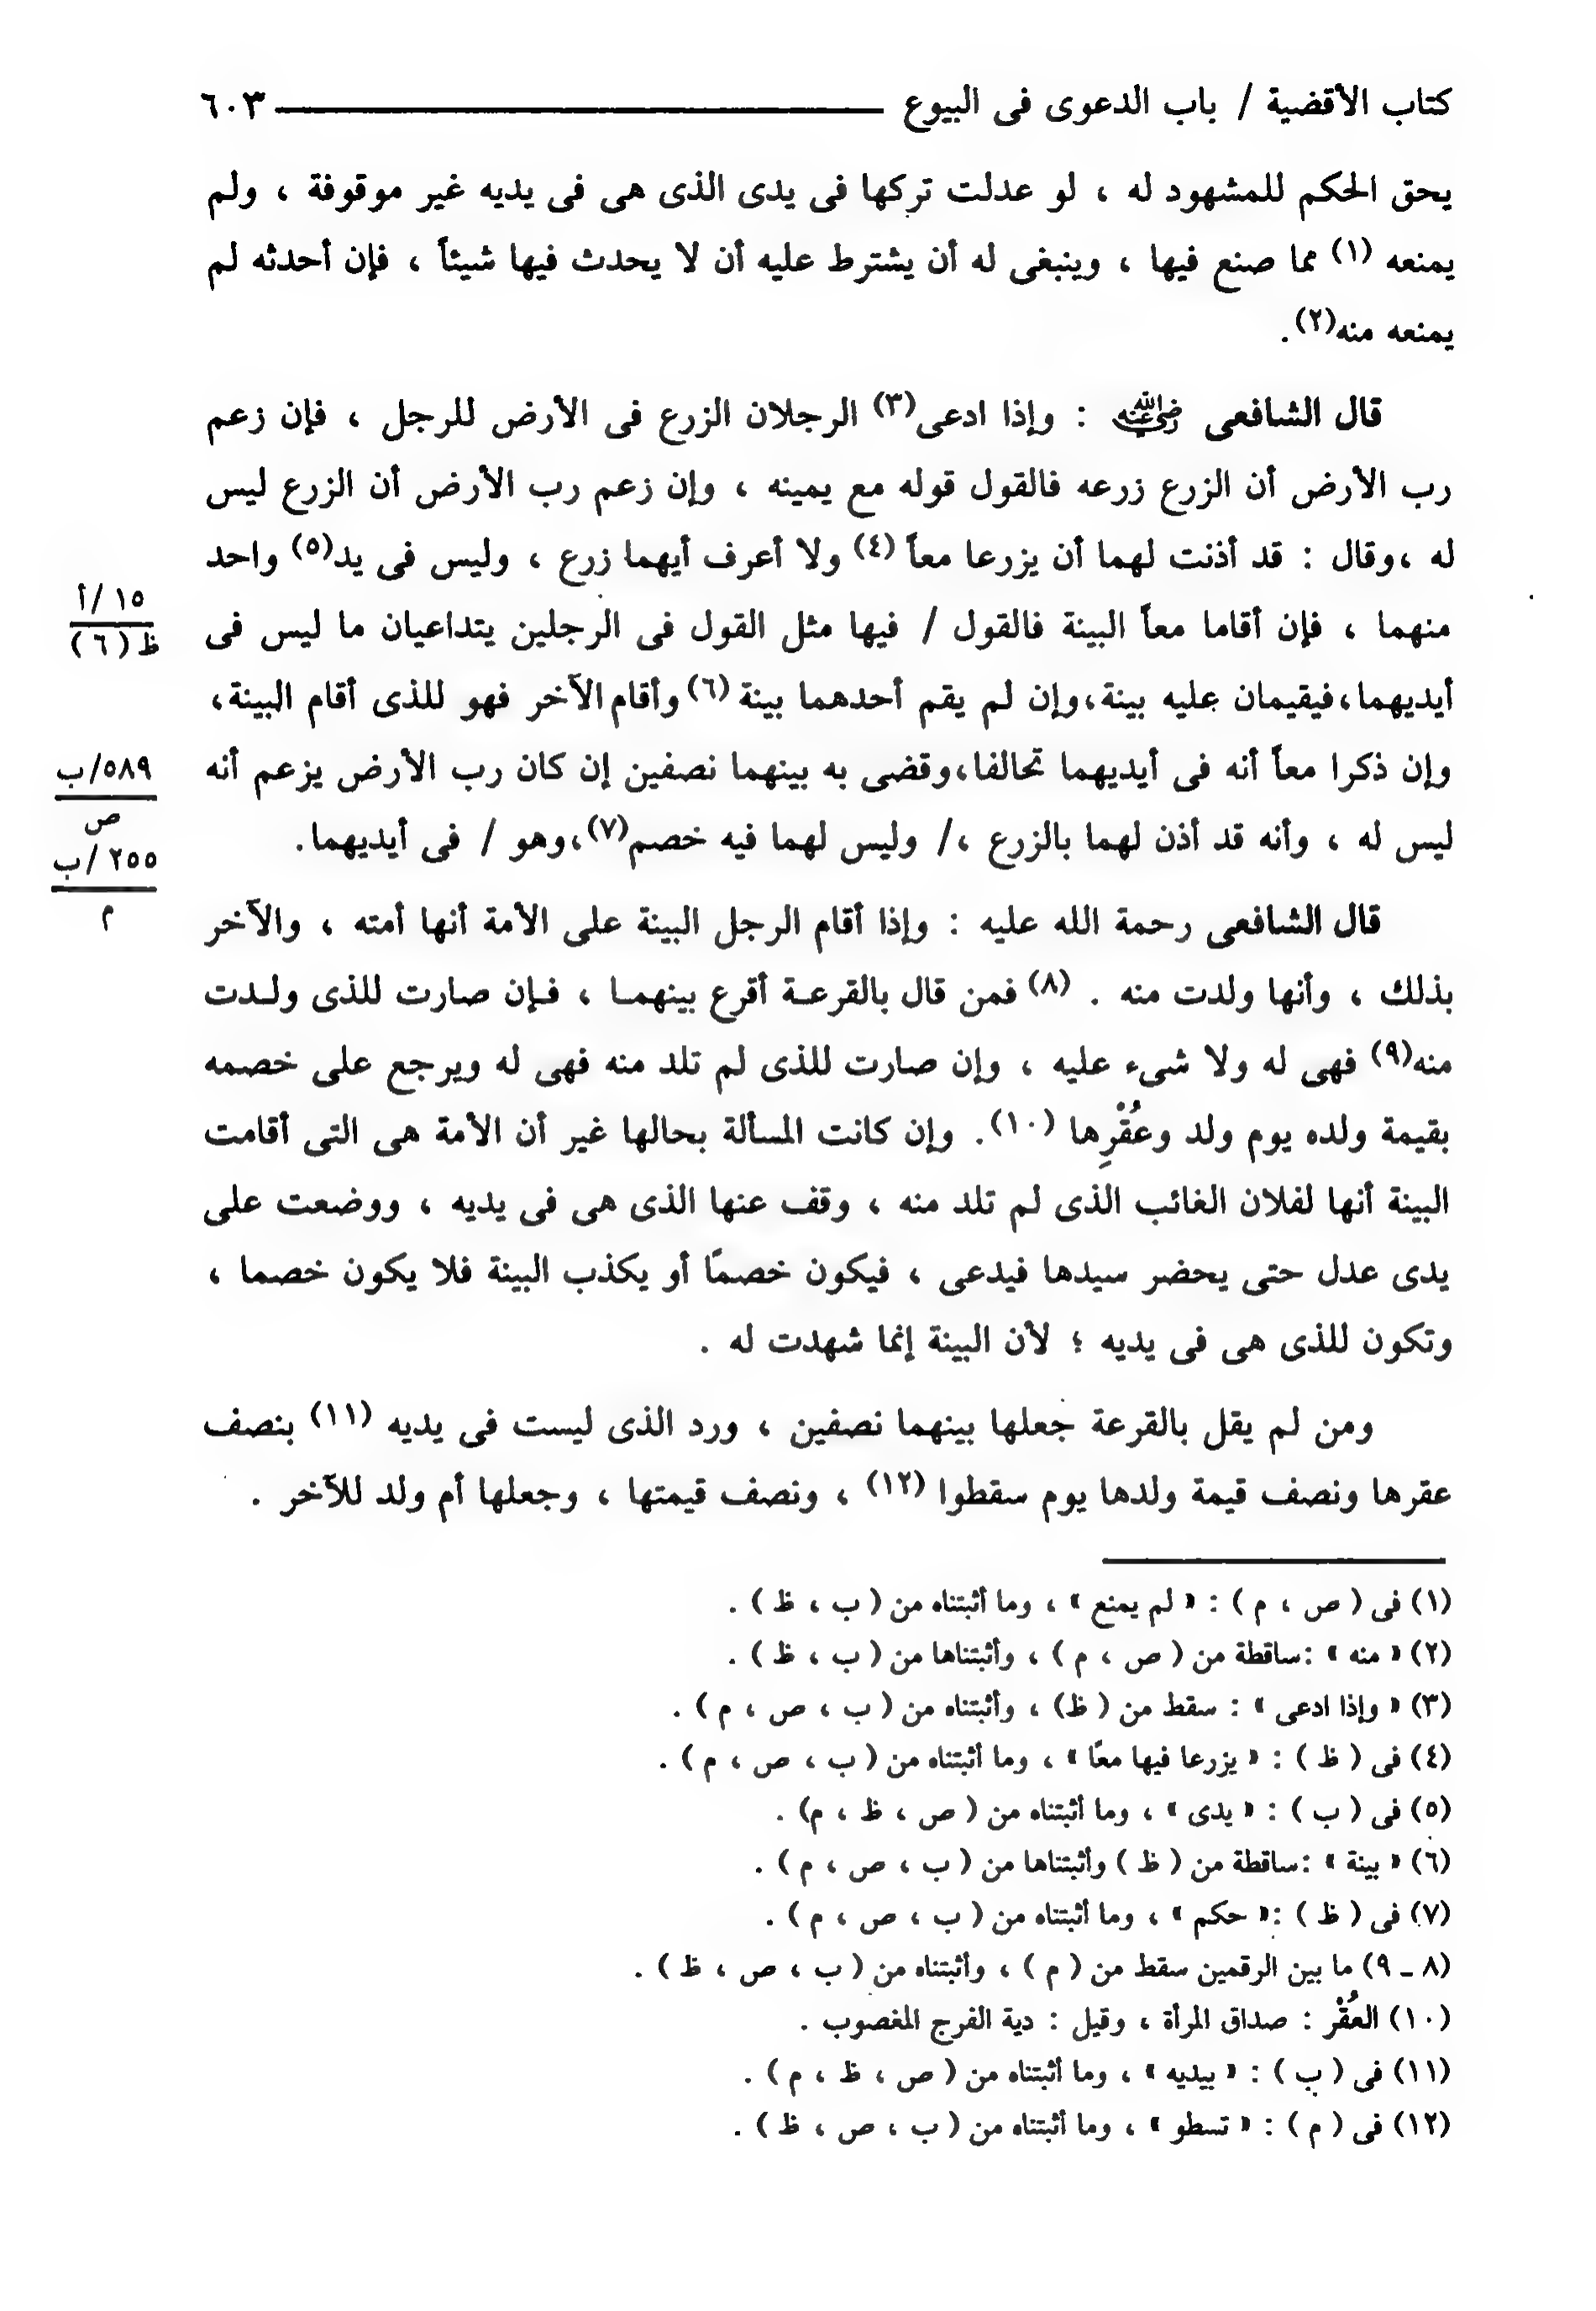 كتاب الأقضية / باب الدعوى فى البيوع ٦٠٣
يحق الحكم للمشهود له ، لو عدلت تركها فى يدى الذى هى فى يديه غير موقوفة ، ولم
يمنعه (١) مما صنع فيها ، وينبغى له أن يشترط عليه أن لا يحدث فيها شيئاً ، فإن أحدثه لم
يمنعه منه(٢).
قال الشافعى رضي الله عنه : وإذا ادعى(٣) الرجلان الزرع فى الأرض للرجل ، فإن زعم
رب الأرض أن الزرع زرعه فالقول قوله مع يمينه ، وإن زعم رب الأرض أن الزرع ليس
له ،وقال : قد أذنت لهما أن يزرعا معاً (٤) ولا أعرف أيهما زرع ، وليس فى يد(٥) واحد
١٥ /أ
ظ (٦)
منهما ، فإن أقاما معاً البينة فالقول / فيها مثل القول فى الرجلين يتداعيان ما ليس فى
أيديهما،فيقيمان عليه بينة،وإن لم يقم أحدهما بينة (٦) وأقام الآخر فهو للذى أقام البينة،
٥٨٩/ب
ص
وإن ذكرا معاً أنه فى أيديهما تحالفا،وقضى به بينهما نصفين إن كان رب الأرض يزعم أنه
ليس له ، وأنه قد أذن لهما بالزرع ،/ وليس لهما فيه خصم(٧)،وهو / فى أيديهما.
٢٥٥ /ب
م
قال الشافعى رحمة الله عليه : وإذا أقام الرجل البينة على الأمة أنها أمته ، والآخر
بذلك ، وأنها ولدت منه . (٨) فمن قال بالقرعـة أقرع بينهمـا ، فـإن صارت للذى ولـدت
منه(٩) فهى له ولا شىء عليه ، وإن صارت للذى لم تلد منه فهى له ويرجع على خصمه
بقيمة ولده يوم ولد وعُقْرِها (١٠). وإن كانت المسألة بحالها غير أن الأمة هى التى أقامت
البينة أنها لفلان الغائب الذى لم تلد منه ، وقف عنها الذى هى فى يديه ، ووضعت على
يدى عدل حتى يحضر سيدها فيدعى ، فيكون خصمًا أو يكذب البينة فلا يكون خصما ،
وتكون للذى هى فى يديه ؛ لأن البينة إنما شهدت له .
ومن لم يقل بالقرعة جعلها بينهما نصفين ، ورد الذى ليست فى يديه (١١) بنصف
عقرها ونصف قيمة ولدها يوم سقطوا (١٢) ، ونصف قيمتها ، وجعلها أم ولد للآخر .
(١) فى ( ص ، م ) : « لم يمنع » ، وما أثبتناه من ( ب ، ظ ) .
(٢) « منه » :ساقطة من ( ص ، م ) ، وأثبتناها من ( ب ، ظ ) .
(٣) « وإذا ادعى » : سقط من ( ظ) ، وأثبتناه من ( ب ، ص ، م ) .
(٤) فى ( ظ ) : « يزرعا فيها معًا » ، وما أثبتناه من ( ب ، ص ، م ) .
(٥) فى ( ب ) : « يدى » ، وما أثبتناه من ( ص ، ظ ، م) .
(٦) « بينة » :ساقطة من ( ظ ) وأثبتناها من ( ب ، ص ، م ) .
(٧) فى ( ظ ) :« حكم » ، وما أثبتناه من ( ب ، ص ، م ) .
(٨ ـ ٩) ما بين الرقمين سقط من ( م ) ، وأثبتناه من ( ب ، ص ، ظ ) .
(١٠) العُقْر : صداق المرأة ، وقيل : دية الفرج المغصوب .
(١١) فى ( ب ) : « بيديه » ، وما أثبتناه من ( ص ، ظ ، م ) .
(١٢) فى ( م ) : « تسطو » ، وما أثبتناه من ( ب ، ص ، ظ ) .